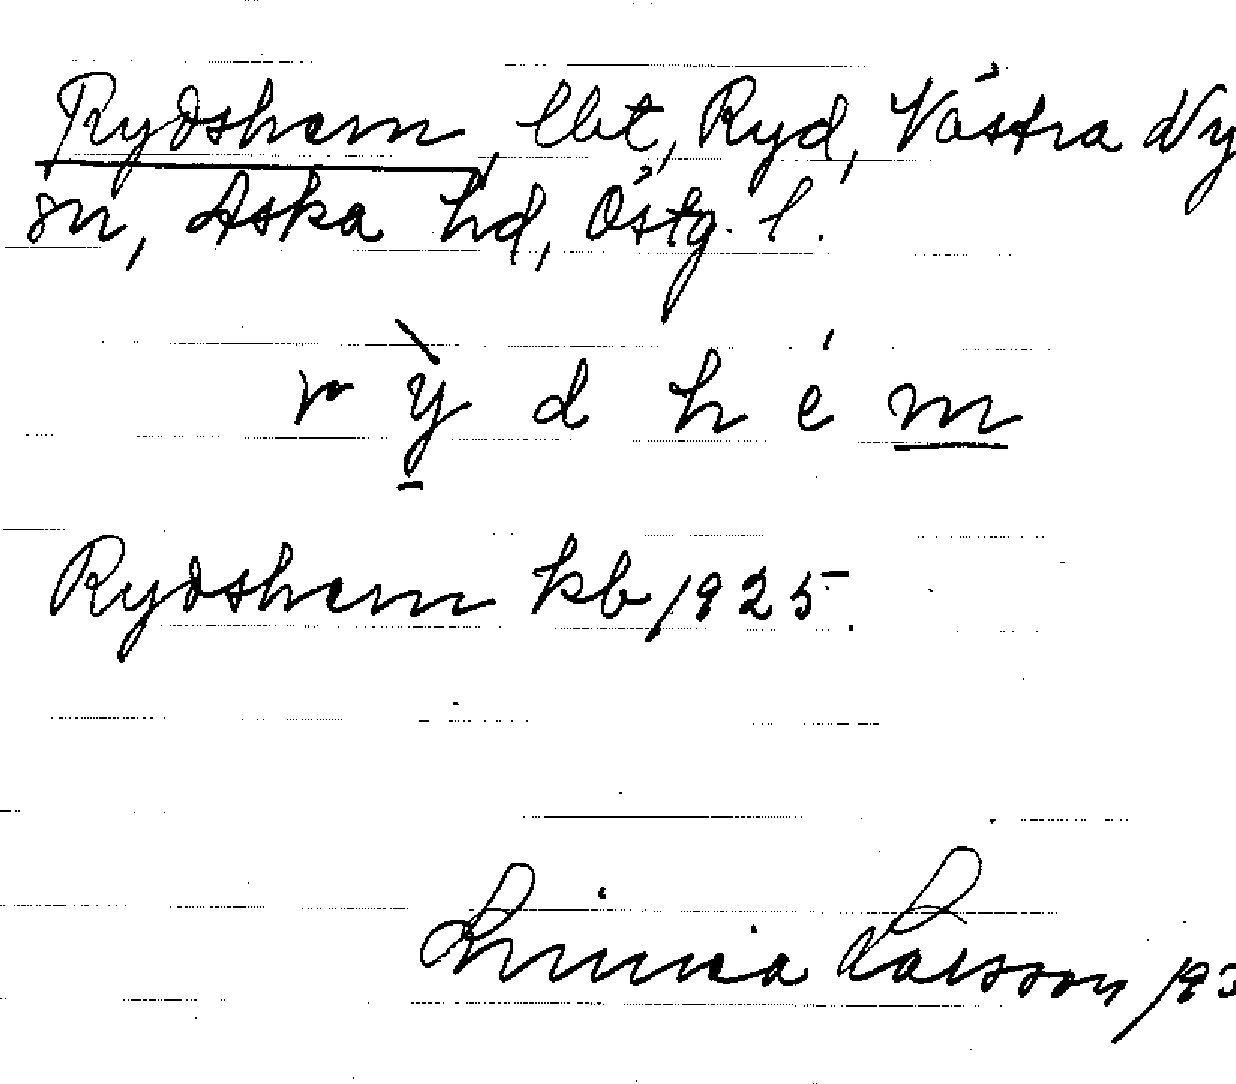 Rydshem, lbt, Ryd, Västra Ny
sn, Aska hd, Östg. l.
r ỳ d h é m
Rydshem kb 1925.
Linnea Larsson 193